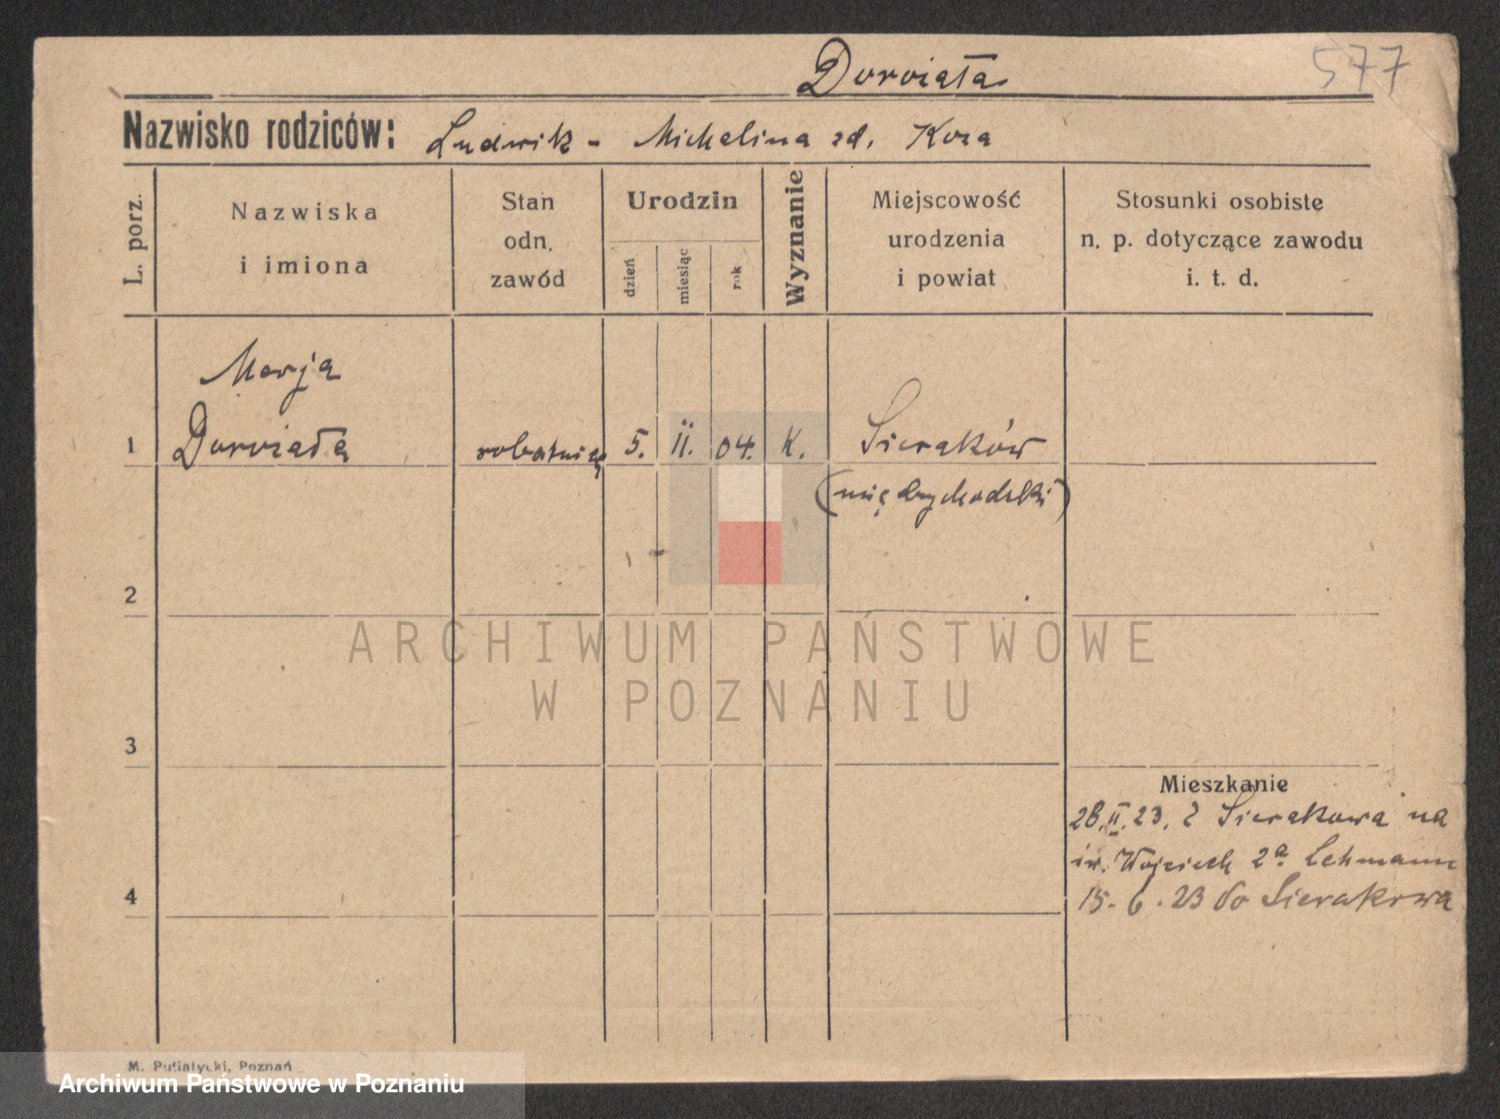 577
Dorviała
Nazwisko rodziców: Ludwik - Michalina zd. Koza
L. porz.
Nazwiska
i imiona
Stan
odn.
zawód
Urodzin
dzień
miesiąc
rok
Wyznanie
Miejscowość
urodzenia
i powiat
Stosunki osobiste
n. p. dotyczące zawodu
i. t. d.
Marja
1 Dorviała robotnica 5. II. 04. K. Sieraków
(międzychodzki)
2
ARCHIWUM PAŃSTWOWE
W POZNANIU
3
Mieszkanie
28.II.23. z Sierakowa na
św. Wojciech 2a Lehmann
4
15.6.23 do Sierakowa
M. Putiatycki, Poznań
Archiwum Państwowe w Poznaniu